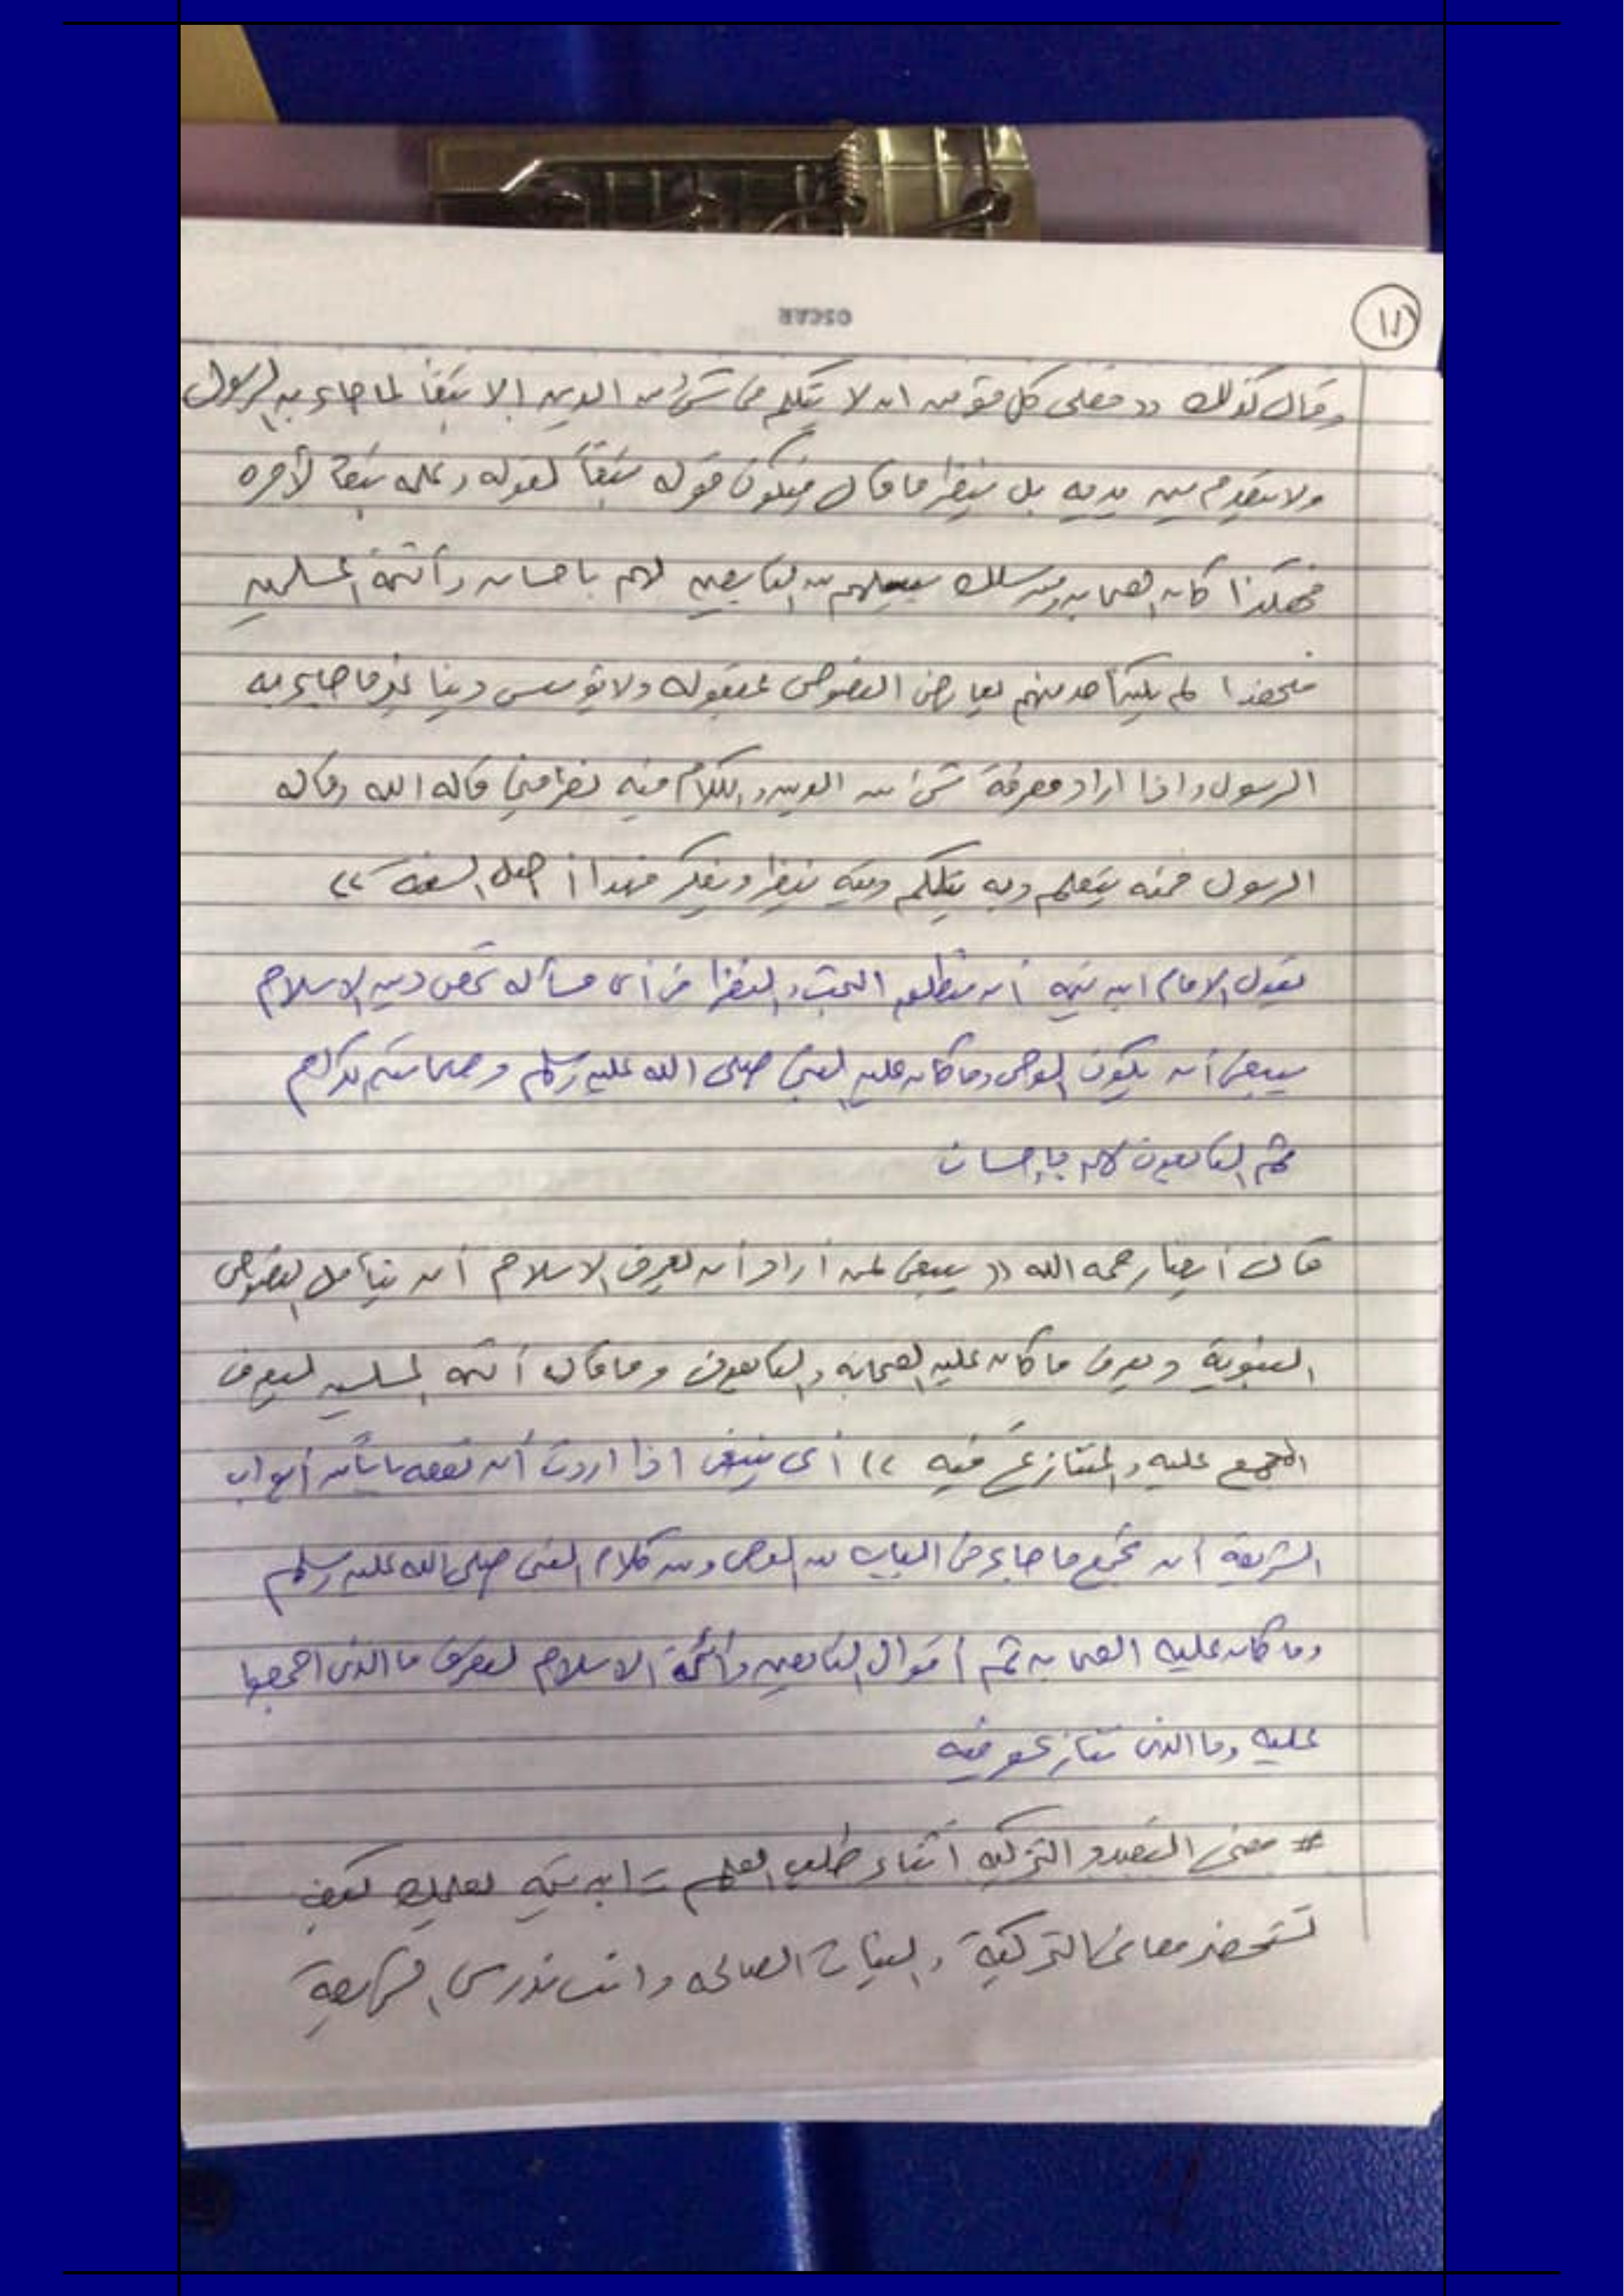 OSCAR
١١
وقال كذلك (( فعلى كل مؤمن ان لا يتكلم في شئ من الدين إلا تبعاً لما جاء به الرسول
ولا يتقدم بين يديه بل ينظر ما قال فيكون قوله تبعاً لقوله وعمله تبعاً لأمره
فهكذا كان الصحابه ومن سلك سبيلهم من التابعين لهم باحسان وأئمة المسلمين
فلهذا لم يكن أحد منهم يعارض النصوص بمعقوله ولا يؤسس دينا غير ما جاء به
الرسول واذا اراد معرفة شئ من الدين والكلام فيه نظر فيما قاله الله وقاله
الرسول فمنه يتعلم وبه يتكلم وفيه ينظر ويفكر فهذا أصل السنة ))
يقول الامام ابن تيميه أن منطلق البحث والنظر في أى مسأله تخص دين الاسلام
ينبغي أن يكون الوحى وما كان عليه النبي صلى الله عليه وسلم وصحابته الكرام
ثم التابعون لهم بإحسان
قال أيضا رحمه الله (( ينبغى لمن أراد أن يعرف الاسلام أن يتأمل النصوص
النبوية ويعرف ما كان عليه الصحابه والتابعون وما قاله أئمه المسلمين ليعرف
المجمع عليه والمتنازع فيه )) أى ينبغى اذا اردت أن تفقه بابا من أبواب
الشريعه أن تجمع ما جاء في الباب من الوحى ومن كلام النبى صلى الله عليه وسلم
وما كان عليه الصحابه ثم أقوال التابعين وأئمة الاسلام لتعرف ما الذى اجمعوا
عليه وما الذى تنازعو فيه
# معنى التعبد والتزكيه أثناء طلب العلم = ابن تيميه يعلمك كيف
تستحضر معانى التزكية والنيات الصالحه وانت تدرس الشريعة